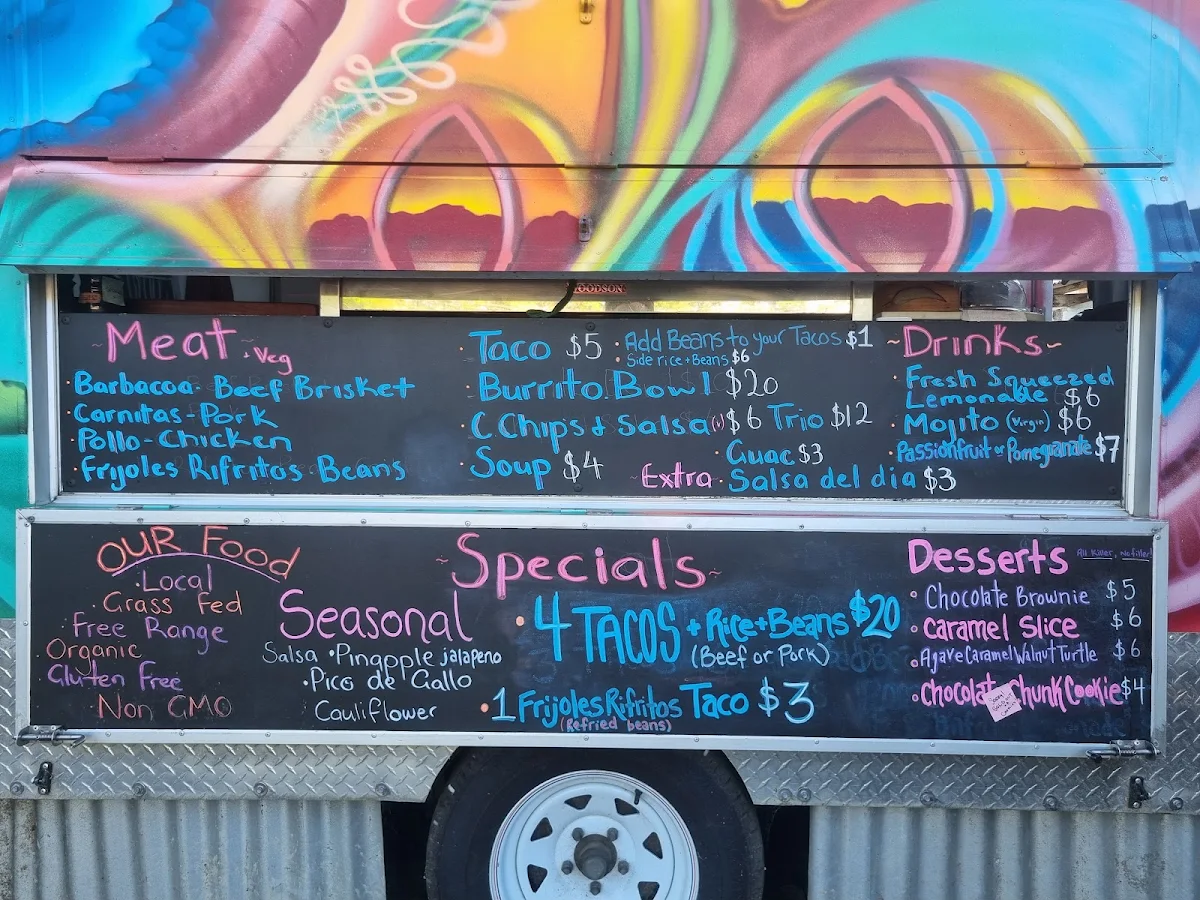 WOODSON
~Meat. Veg
· Barbacoa Beef Brisket
· Carnitas-Pork
· Pollo-Chicken
· Frijoles Rifritos Beans
· Taco $5
· Add Beans to your Tacos $1
· Side rice + Beans $6
· Burrito Bowl $20
· C Chips & Salsa $6 Trio $12
· Soup $4
· Guac $3
~ Extra · Salsa del dia $3
~Drinks~
· Fresh Squeezed
Lemonade $6
· Mojito (Virgin) $6
· Passionfruit or Pomegranate $7
OUR Food
· Local
· Grass Fed
Free Range
Organic
Gluten Free
Non GMO
~Specials~
Seasonal
Salsa · Pinapple jalapeno
· Pico de Gallo
Cauliflower
· 4 TACOS + Rice + Beans $20
(Beef or Pork)
· 1 Frijoles Rifritos Taco $3
(Refried beans)
Desserts All Killer, No filler!
· Chocolate Brownie $5
· Caramel Slice $6
· Agave Caramel Walnut Turtle $6
· Chocolate Chunk Cookie $4